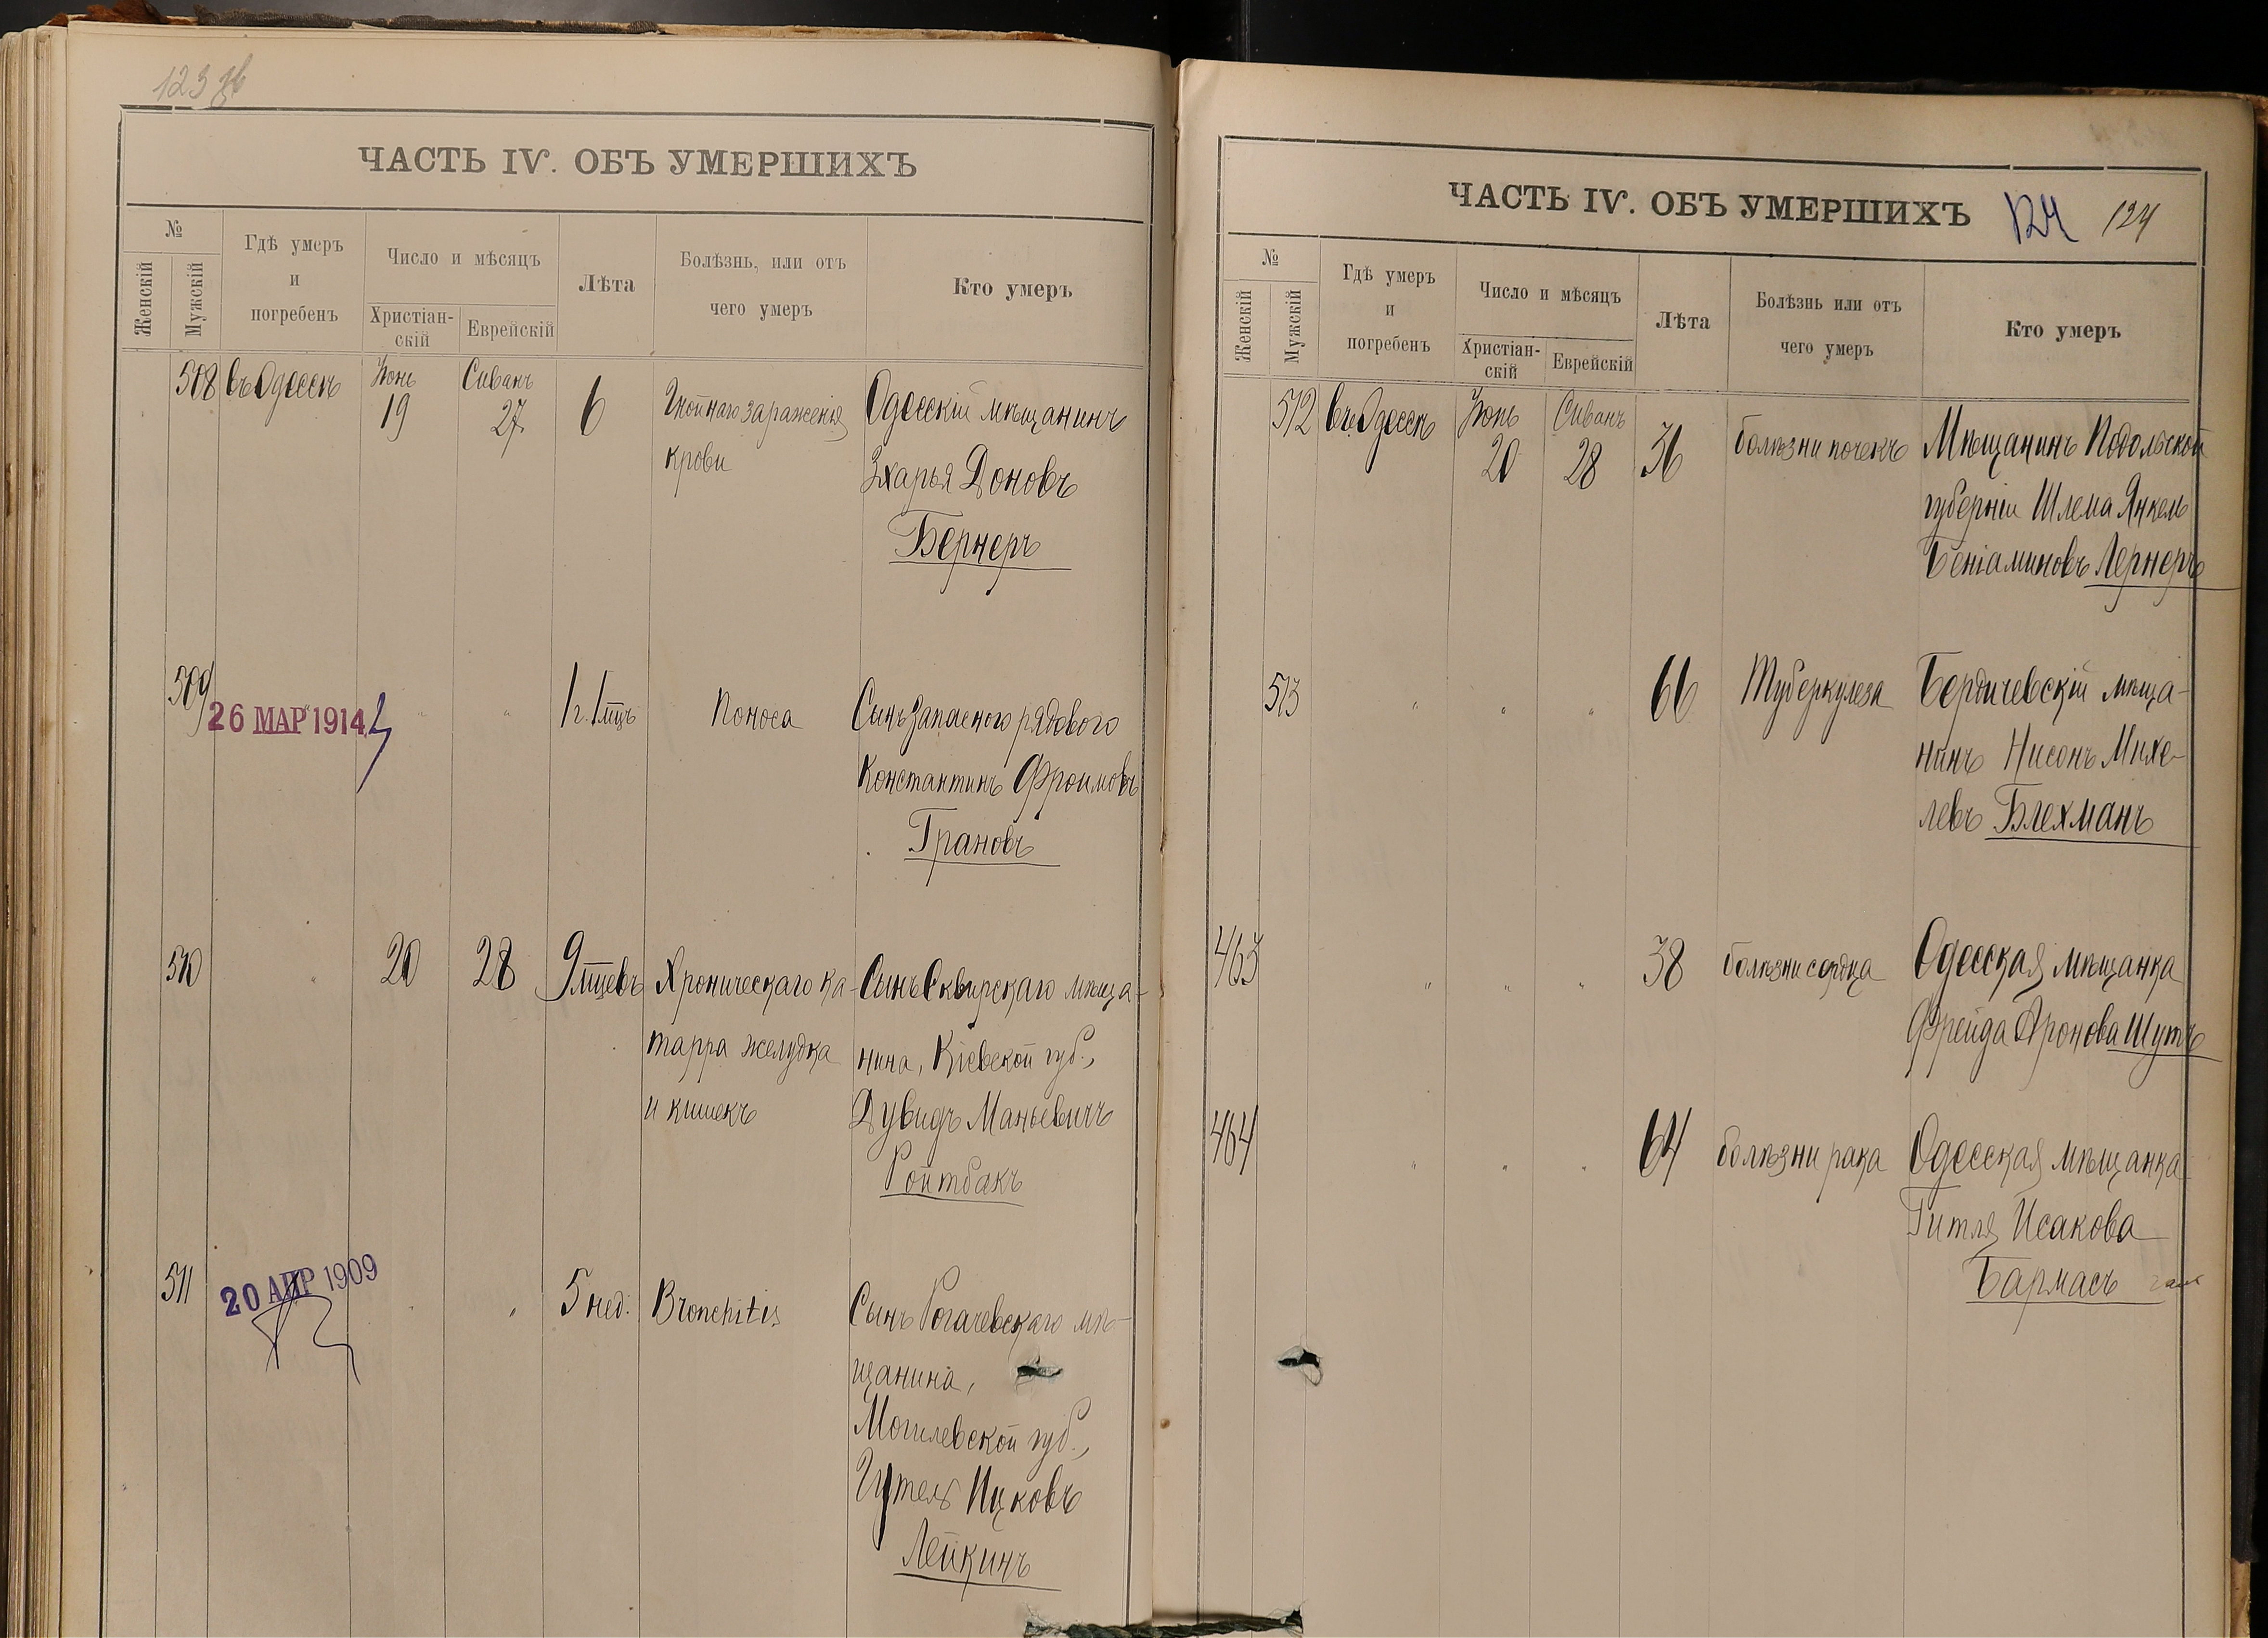 123 об
ЧАСТЬ IV. ОБЪ УМЕРШИХЪ
№
Женскій
Мужскій
Гдѣ умеръ
и
погребенъ
Число и мѣсяцъ
Христіан-
скій
Еврейскій
Лѣта
Болѣзнь, или отъ
чего умеръ
Кто умеръ
508 въ Одессѣ Іюнь 19 Сиванъ 27 6 Гнойнаго зараженія Одесскій мѣщанинъ
крови Зхарья Доновъ
Бернеръ
509 " " " 1 г. 1 мцъ Поноса Сынъ запаснаго рядового
26 МАР 1914
Константинъ Фроимовъ
Грановъ
510 " 20 28 9 мцевъ Хроническаго ка- Сынъ Сквирскаго мѣща-
тарра желудка нина, Кіевской губ.,
и кишекъ Дувидъ Маньевичъ
Ройтбакъ
511 " " 5 нед. Bronchitis Сынъ Рогачевскаго мѣ-
20 АПР 1909
щанина,
Могилевской губ.,
Ицковъ
Лейкинъ
ЧАСТЬ IV. ОБЪ УМЕРШИХЪ 124 124
№
Женскій
Мужскій
Гдѣ умеръ
и
погребенъ
Число и мѣсяцъ
Христіан-
скій
Еврейскій
Лѣта
Болѣзнь или отъ
чего умеръ
Кто умеръ
512 въ Одессѣ Іюнь 20 Сиванъ 28 36 болѣзни почекъ Мѣщанинъ Подольской
губерніи Шлема Янкель
Беніаминовъ Лернеръ
513 " " " 66 Туберкулеза Бердичевскій мѣща-
нинъ Нисонъ Михе-
левъ Блехманъ
463 " " " 38 болѣзни сердца Одесская мѣщанка
Фрейда Аронова Шутъ
464 " " " 64 болѣзни рака Одесская мѣщанка
Гитля Исакова
Бармасъ